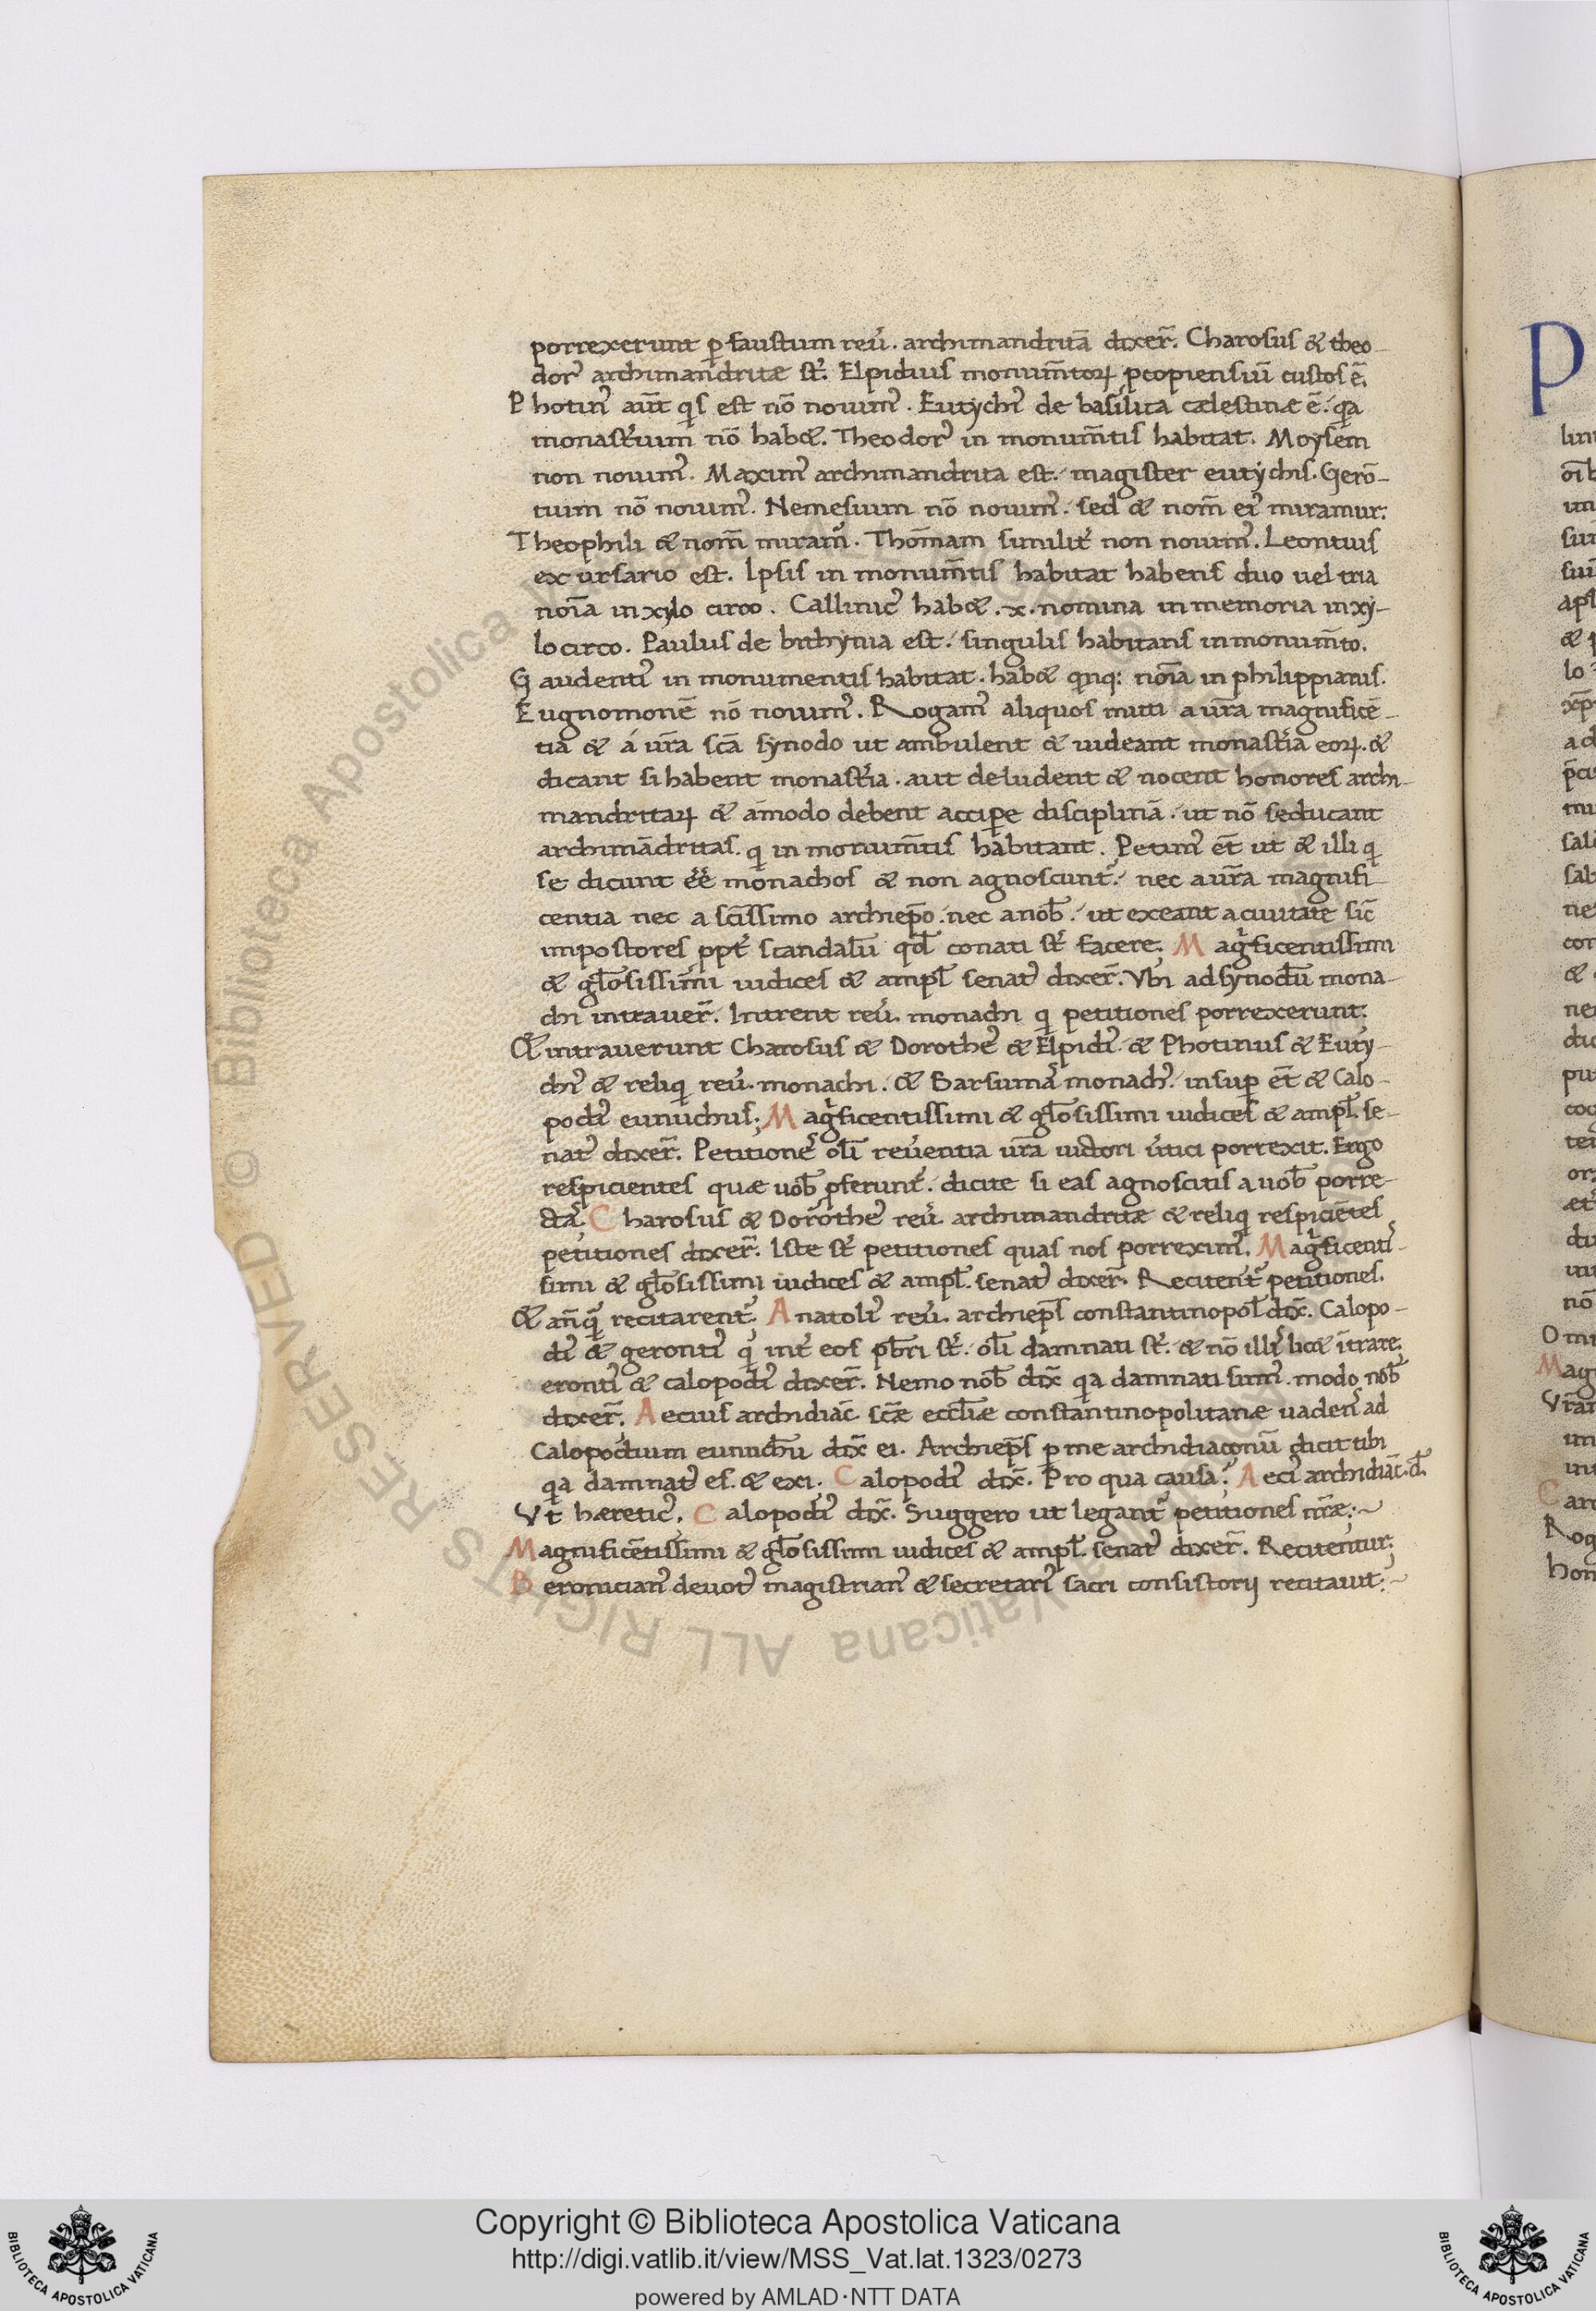 porrexerunt ꝑ faustum reu̓. archimandritā dixer̃. Charosus & theo-
dor᾽ archimandritæ st̓. Elpidius monum̃torꝝ pcopiensiū custos ē.
Photin᾽ aut̃ qͥs est nō nouim᾽. Eutychi᾽ de basilica cælestinæ ē. qͥa
monast̓ium nō hab&. Theodor᾽ in monum̃tis habitat. Moysem
non nouim᾽. Maxim᾽ archimandrita est. magister eutychis. Gerō-
tium nō nouim᾽. Nemesium nō nouim᾽. sed & nom̃ ei᾽ miramur.
Theophili & nom̃ miram᾽. Thomam similit̓ non nouim᾽. Leontius
ex ursario est. Ipsis in monum̃tis habitat habens duo uel tria
noīa in xylo circo. Callinic᾽ hab&. x. nomina in memoria in xy-
lo circo. Paulus de bithynia est. singulis habitans in monum̃to.
Gaudenti᾽ in monumentis habitat. hab& qͥnqꝫ noīa in philippianis.
Eugnomonē nō nouim᾽. Rogam᾽ aliquos mitti a ur̃a magnificē-
tia & á ur̃a sc̃a synodo ut ambulent & uideant monast̓ia eorꝝ. &
dicant si habent monast̓ia. aut deludent & nocent honores archi-
mandritarꝝ & ámodo debent accipe disciplinā. ut nō seducant
archimādritas. qͥ in monum̃tis habitant. Petim᾽ et̃ ut & illi qͥ
se dicunt ee̓ monachos & non agnoscunt᾽. nec a ur̃a magnifi-
centia nec a sc̃issimo archiep̃o. nec a nob̃. ut exeant a ciuitate sic̃
impostores ppt̓ scandalū qđ conati st̓ facere. Magͥficentissimi
& gl̃osissimi iudices & ampl̃ senat᾽ dixer̃. Vbi ad synodū mona-
chi intrauer̃. Intrent reu̓. monachi qͥ petitiones porrexerunt.
&intrauerunt Charosus & Dorothe᾽ & Elpidi᾽ & Photinus & Euty-
chi᾽ & reliqͥ reu̓. monachi. & Barsuma᾽ monach᾽. insuꝑ et̃ & Calo-
podi᾽ eunuchus; Magͥficentissimi & gl̃osissimi iudices & ampl̃. se-
nat᾽ dixer̃. Petitione᾽ oli᾽ reu̓entia ur̃a uictori u̓tici porrexit. Ergo
respicientes quæ uob̃ pferunt᾽. dicite si eas agnoscitis a uob̃ porre-
cta᾽. Charosus & Dorothe᾽ reu̓. archimandritæ & reliqͥ respiciētes
petitiones dixer̃. Iste st̓ petitiones quas nos porrexim᾽. Magͥficenti᾽-
simi & gl̃osissimi iudices & ampl̃. senat᾽ dixer̃. Recitent᾽ petitiones.
& an̄qͣ recitarent᾽. Anatoli᾽ reu̓. archiep̃s constantinopol̃ dix̃. Calopo-
di᾽ & geronti᾽ qͥ int̓ eos pb̃ri st̓. oli᾽ damnati st̓. & nō illi᾽ lic& ītrare.
eronti᾽ & calopodi᾽ dixer̃. Nemo nob̃ dix̃ qͥa damnati sum᾽. modo nob̃
dixer̃. Aecius archidiac̃ sc̃æ eccl̃iæ constantinopolitanæ uadens ad
Calopodium eunuchū dix̃ ei. Archiep̃s ꝑ me archidiaconū dicit tibi
qͥa damnat᾽ es. & exi. Calopodi᾽ dix̃. Pro qua causa? Aeci᾽ archidiac̃. d̃.
Vt hæretic᾽. Calopodi᾽ dix̃. Suggero ut legant᾽ petitiones nr̃æ:~
Magnificētissimi & gl̃osissimi iudices & ampl̃. senat᾽ dixer̃. Recitentur.
Beronician᾽ deuot᾽ magistrian᾽ & secretari᾽ sacri consistorij recitauit:~
P
Copyright © Biblioteca Apostolica Vaticana
http://digi.vatlib.it/view/MSS_Vat.lat.1323/0273
powered by AMLAD·NTT DATA
BIBLIOTECA APOSTOLICA VATICANA
BIBLIOTECA APOSTOLICA VATICANA